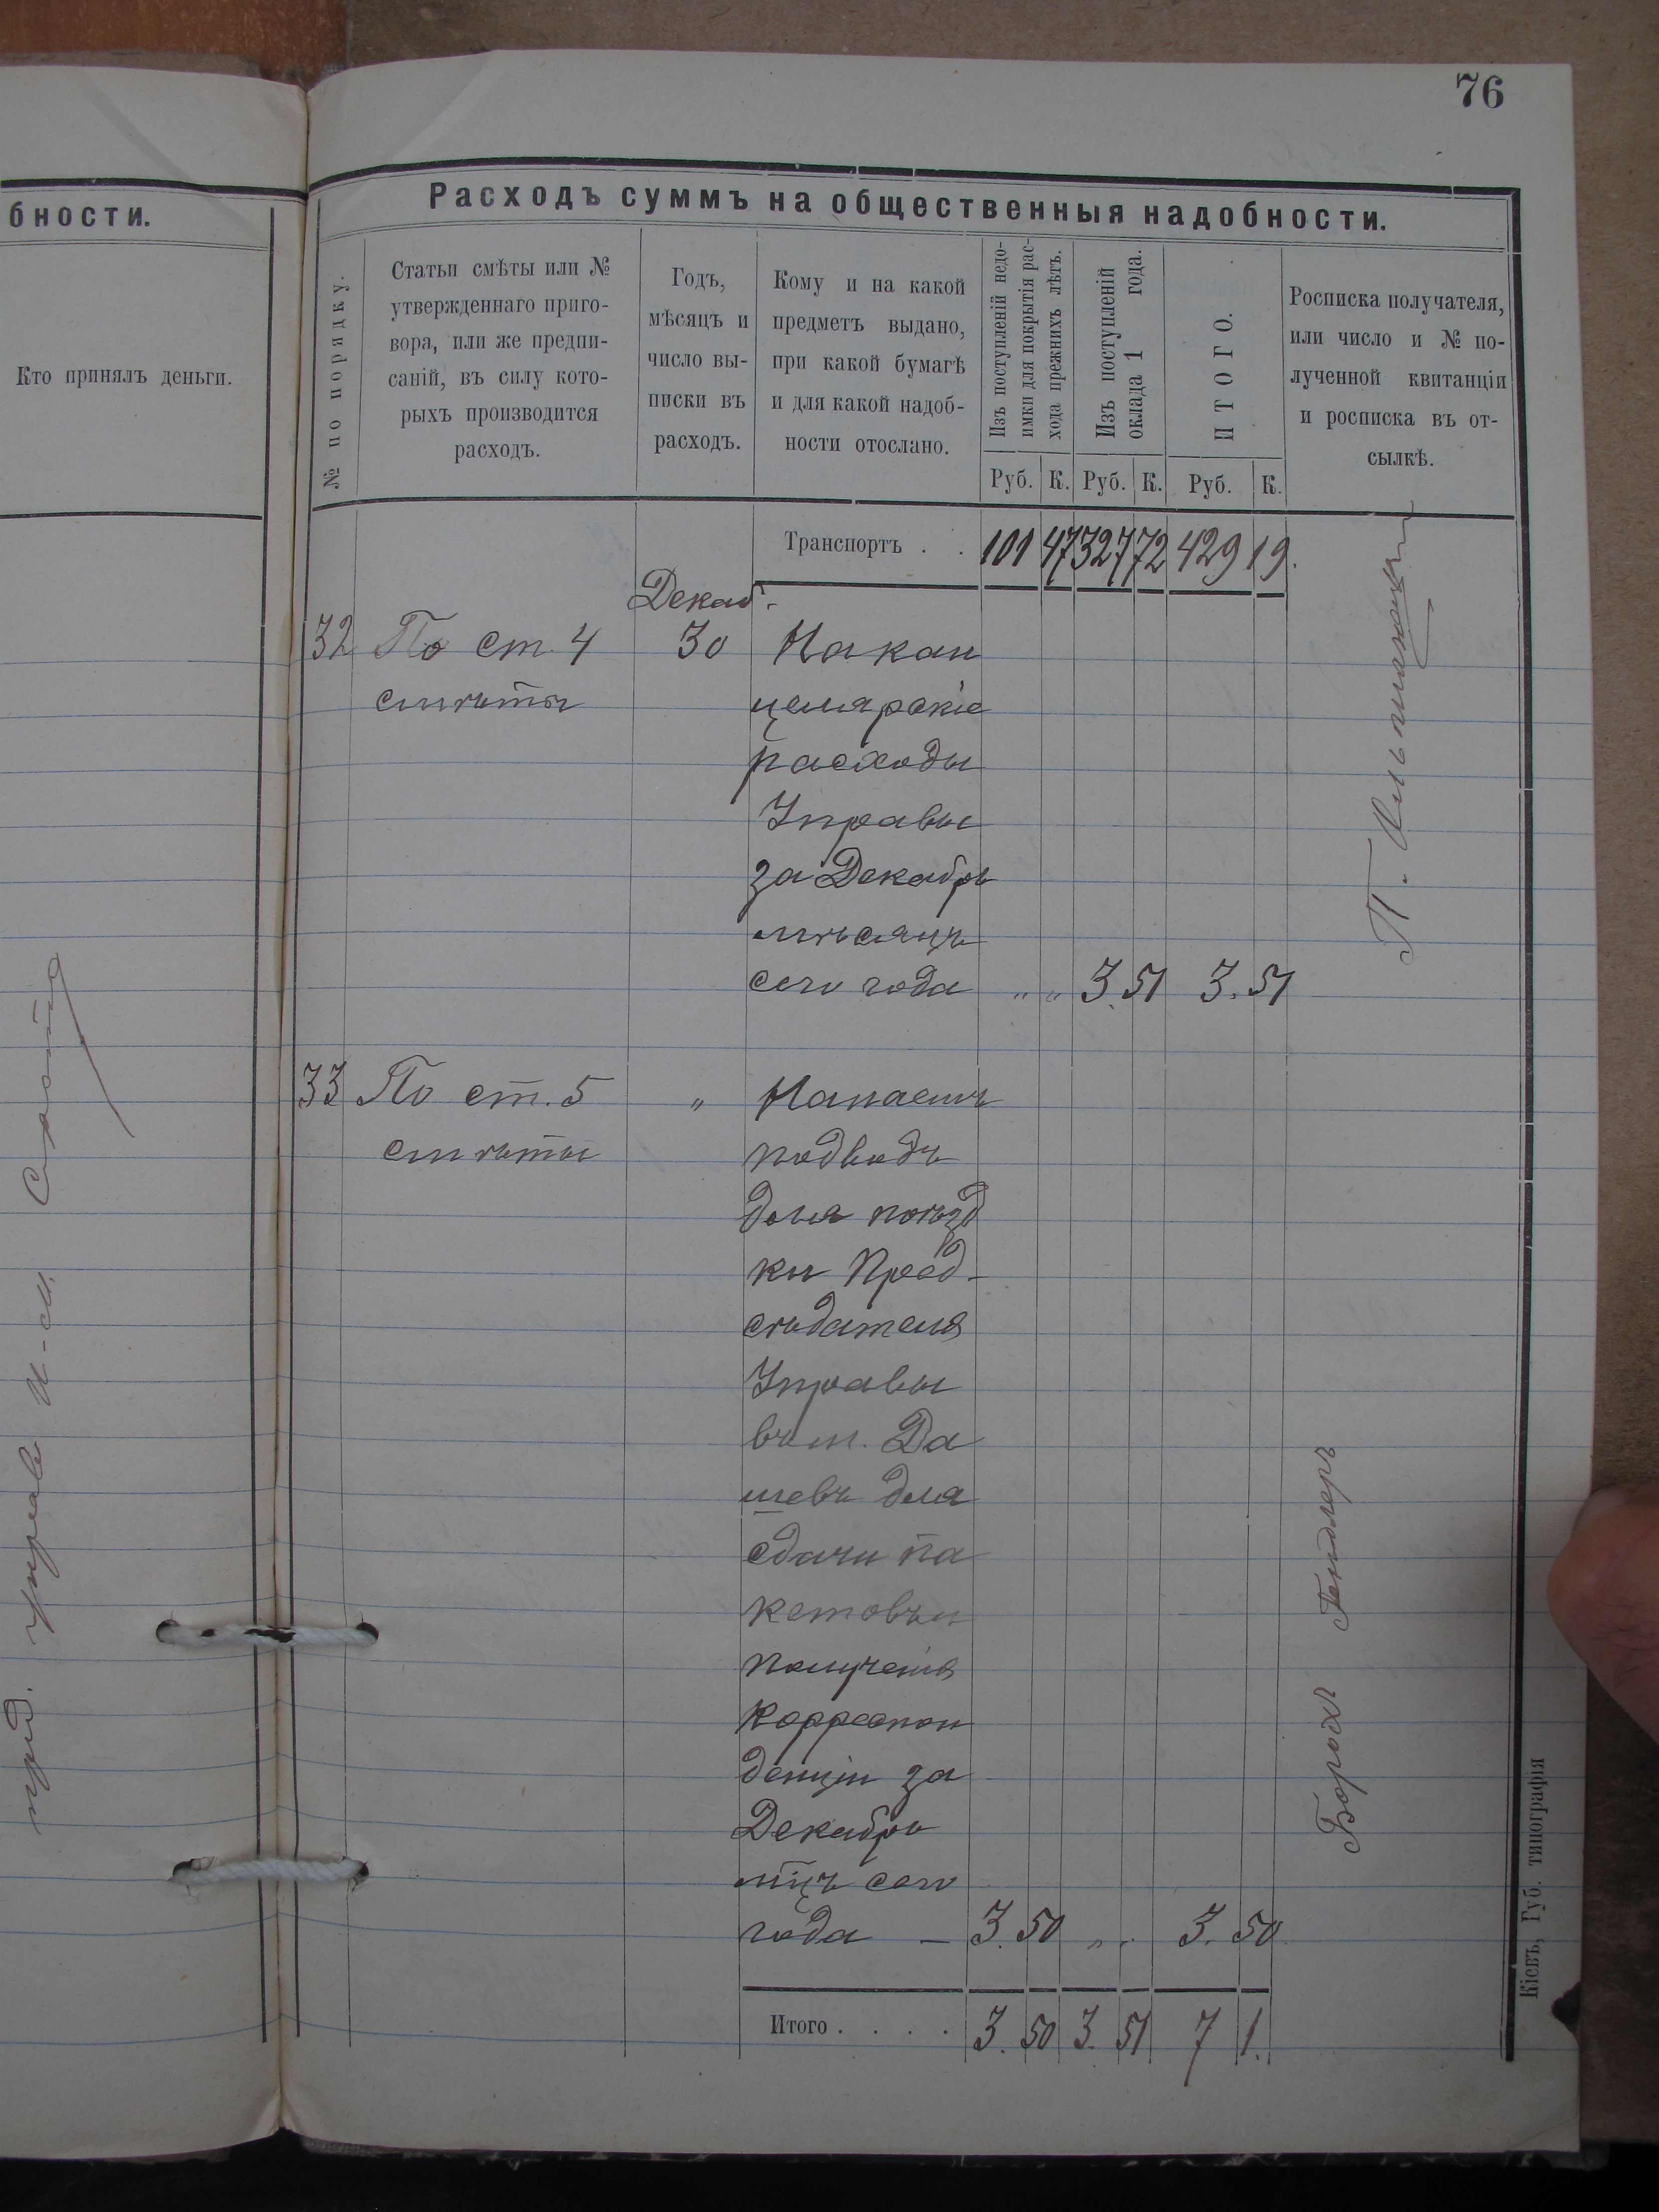 76
бности.
Кто принялъ деньги.
Расходъ суммъ на общественныя надобности.
№ по порядку.
Статьи смѣты или №
утвержденнаго приго-
вора, или же предпи-
саній, въ силу кото-
рыхъ производится
расходъ.
Годъ,
мѣсяцъ и
число вы-
писки въ
расходъ.
Кому и на какой
предметъ выдано,
при какой бумагѣ
и для какой надоб-
ности отослано.
Изъ поступленій недо-
имки для покрытія рас-
хода прежнихъ лѣтъ.
Изъ поступленій
оклада 1 года.
ИТОГО.
Росписка получателя,
или число и № по-
лученной квитанціи
и росписка въ от-
сылкѣ.
Руб. К. Руб. К. Руб. К.
Транспортъ . . 101 47 327 72 429 19.
Декаб.
32 По ст. 4 30 На кан
смѣты целярскіе
расходы
Управы
за Декабрь
мѣсяцъ
сего года „ „ 3. 51 3. 51
33 По ст. 5 „ Напаемъ
смѣты подводъ
для поѣзд
ки Пред-
сѣдателя
Управы
въ м. Да
шевъ для
сдачи па
кетовъ и
полученія
Корреспон
денціи за
Декабрь
мцъ сего
года — 3. 50 „ . 3. 50
Борохъ Тендлеръ
Итого . . . . 3. 50 3. 51 7 1.
Кіевъ, Губ. типографія